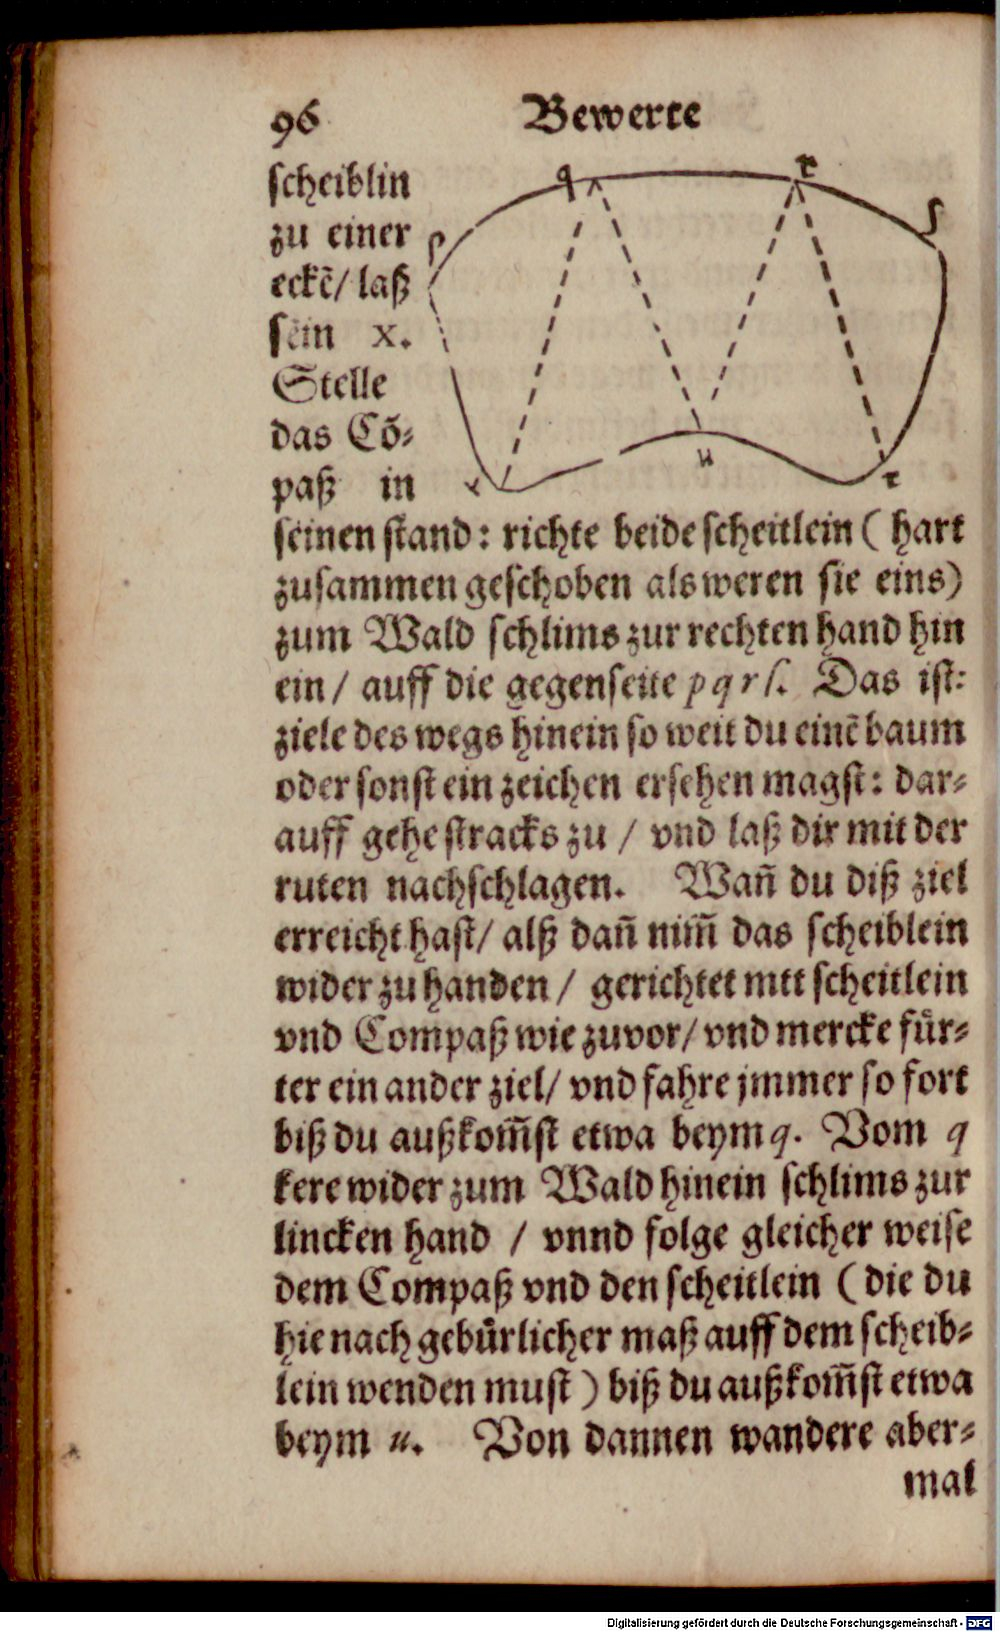 96 Bewerte
ſcheiblin
zu einer
eckẽ/ laß
ſein x.
Stelle
das Cõ⸗
paß in
q r ſ p x u t
ſeinen ſtand: richte beide ſcheitlein ( hart
zuſammen geſchoben als weren ſie eins)
zum Wald ſchlims zur rechten hand hin
ein / auff die gegenſeite p q r ſ. Das iſt:
ziele des wegs hinein ſo weit du einẽ baum
oder ſonſt ein zeichen erſehen magſt: dar⸗
auff gehe ſtracks zu / vnd laß dir mit der
ruten nachſchlagen. Wañ du diß ziel
erreicht haſt/ alß dañ nim̃ das ſcheiblein
wider zu handen / gerichtet mit ſcheitlein
vnd Compaß wie zuvor/ vnd mercke fuͤr⸗
ter ein ander ziel/ vnd fahre jmmer ſo fort
biß du außkom̃ſt etwa beym q. Vom q
kere wider zum Wald hinein ſchlims zur
lincken hand / vnnd folge gleicher weiſe
dem Compaß vnd den ſcheitlein ( die du
hie nach gebuͤrlicher maß auff dem ſcheib⸗
lein wenden muſt ) biß du außkom̃ſt etwa
beym u. Von dannen wandere aber⸗
mal
Digitalisierung gefördert durch die Deutsche Forschungsgemeinschaft - DFG